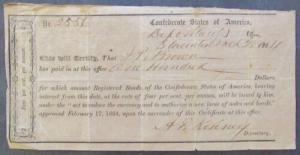 No. 2558
Confederate States of America,
Depository
Staunton March 1864
This will Certify, That J. P. Brown
has paid in at this office One Hundred
Dollars,
for which amount Registered Bonds of the Confederate States of America, bearing
interest from this date, at the rate of four per cent. per annum, will be issued to him
under the "act to reduce the currency and to authorize a new issue of notes and bonds,"
approved February 17, 1864, upon the surrender of this Certificate at this office.
Depositary.